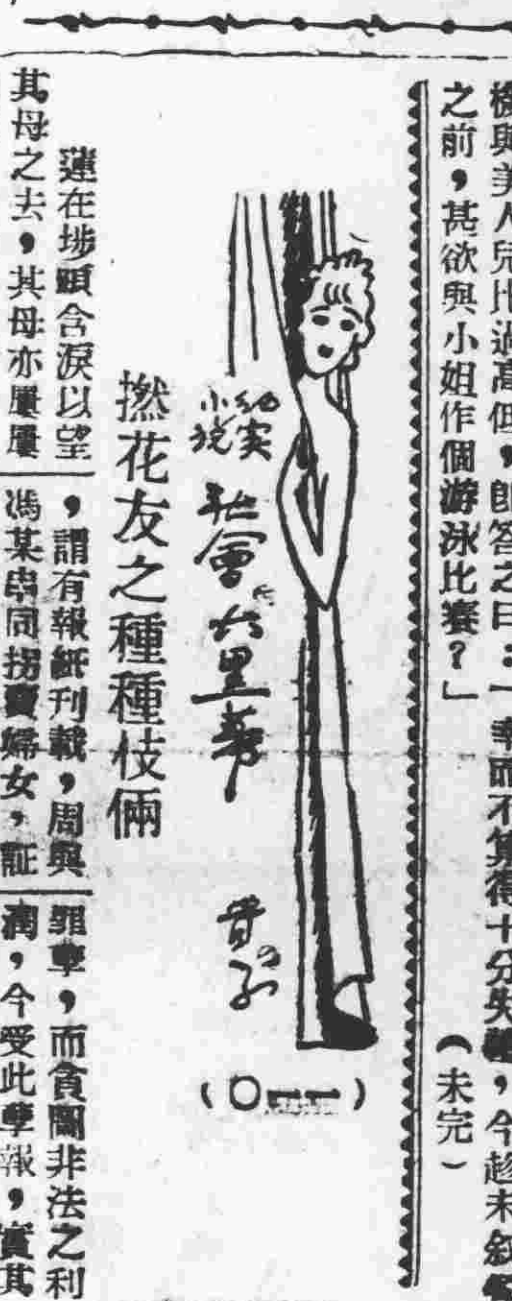 機與美人兒比過高低，即答之曰：「幸而不算得十分失禮，今趁未叙
之前，甚欲與小姐作個游泳比賽？」
（未完）
紀实
小说
社會六里夢
昔子
（〇一一）
撚花友之種種伎倆
蓮在埗頭含淚以望
其母之去，其母亦屢屢
，謂有報紙刊載，周與
馮某串同拐賣婦女，証
罪孽，而貪圖非法之利
潤，今受此孽報，實其